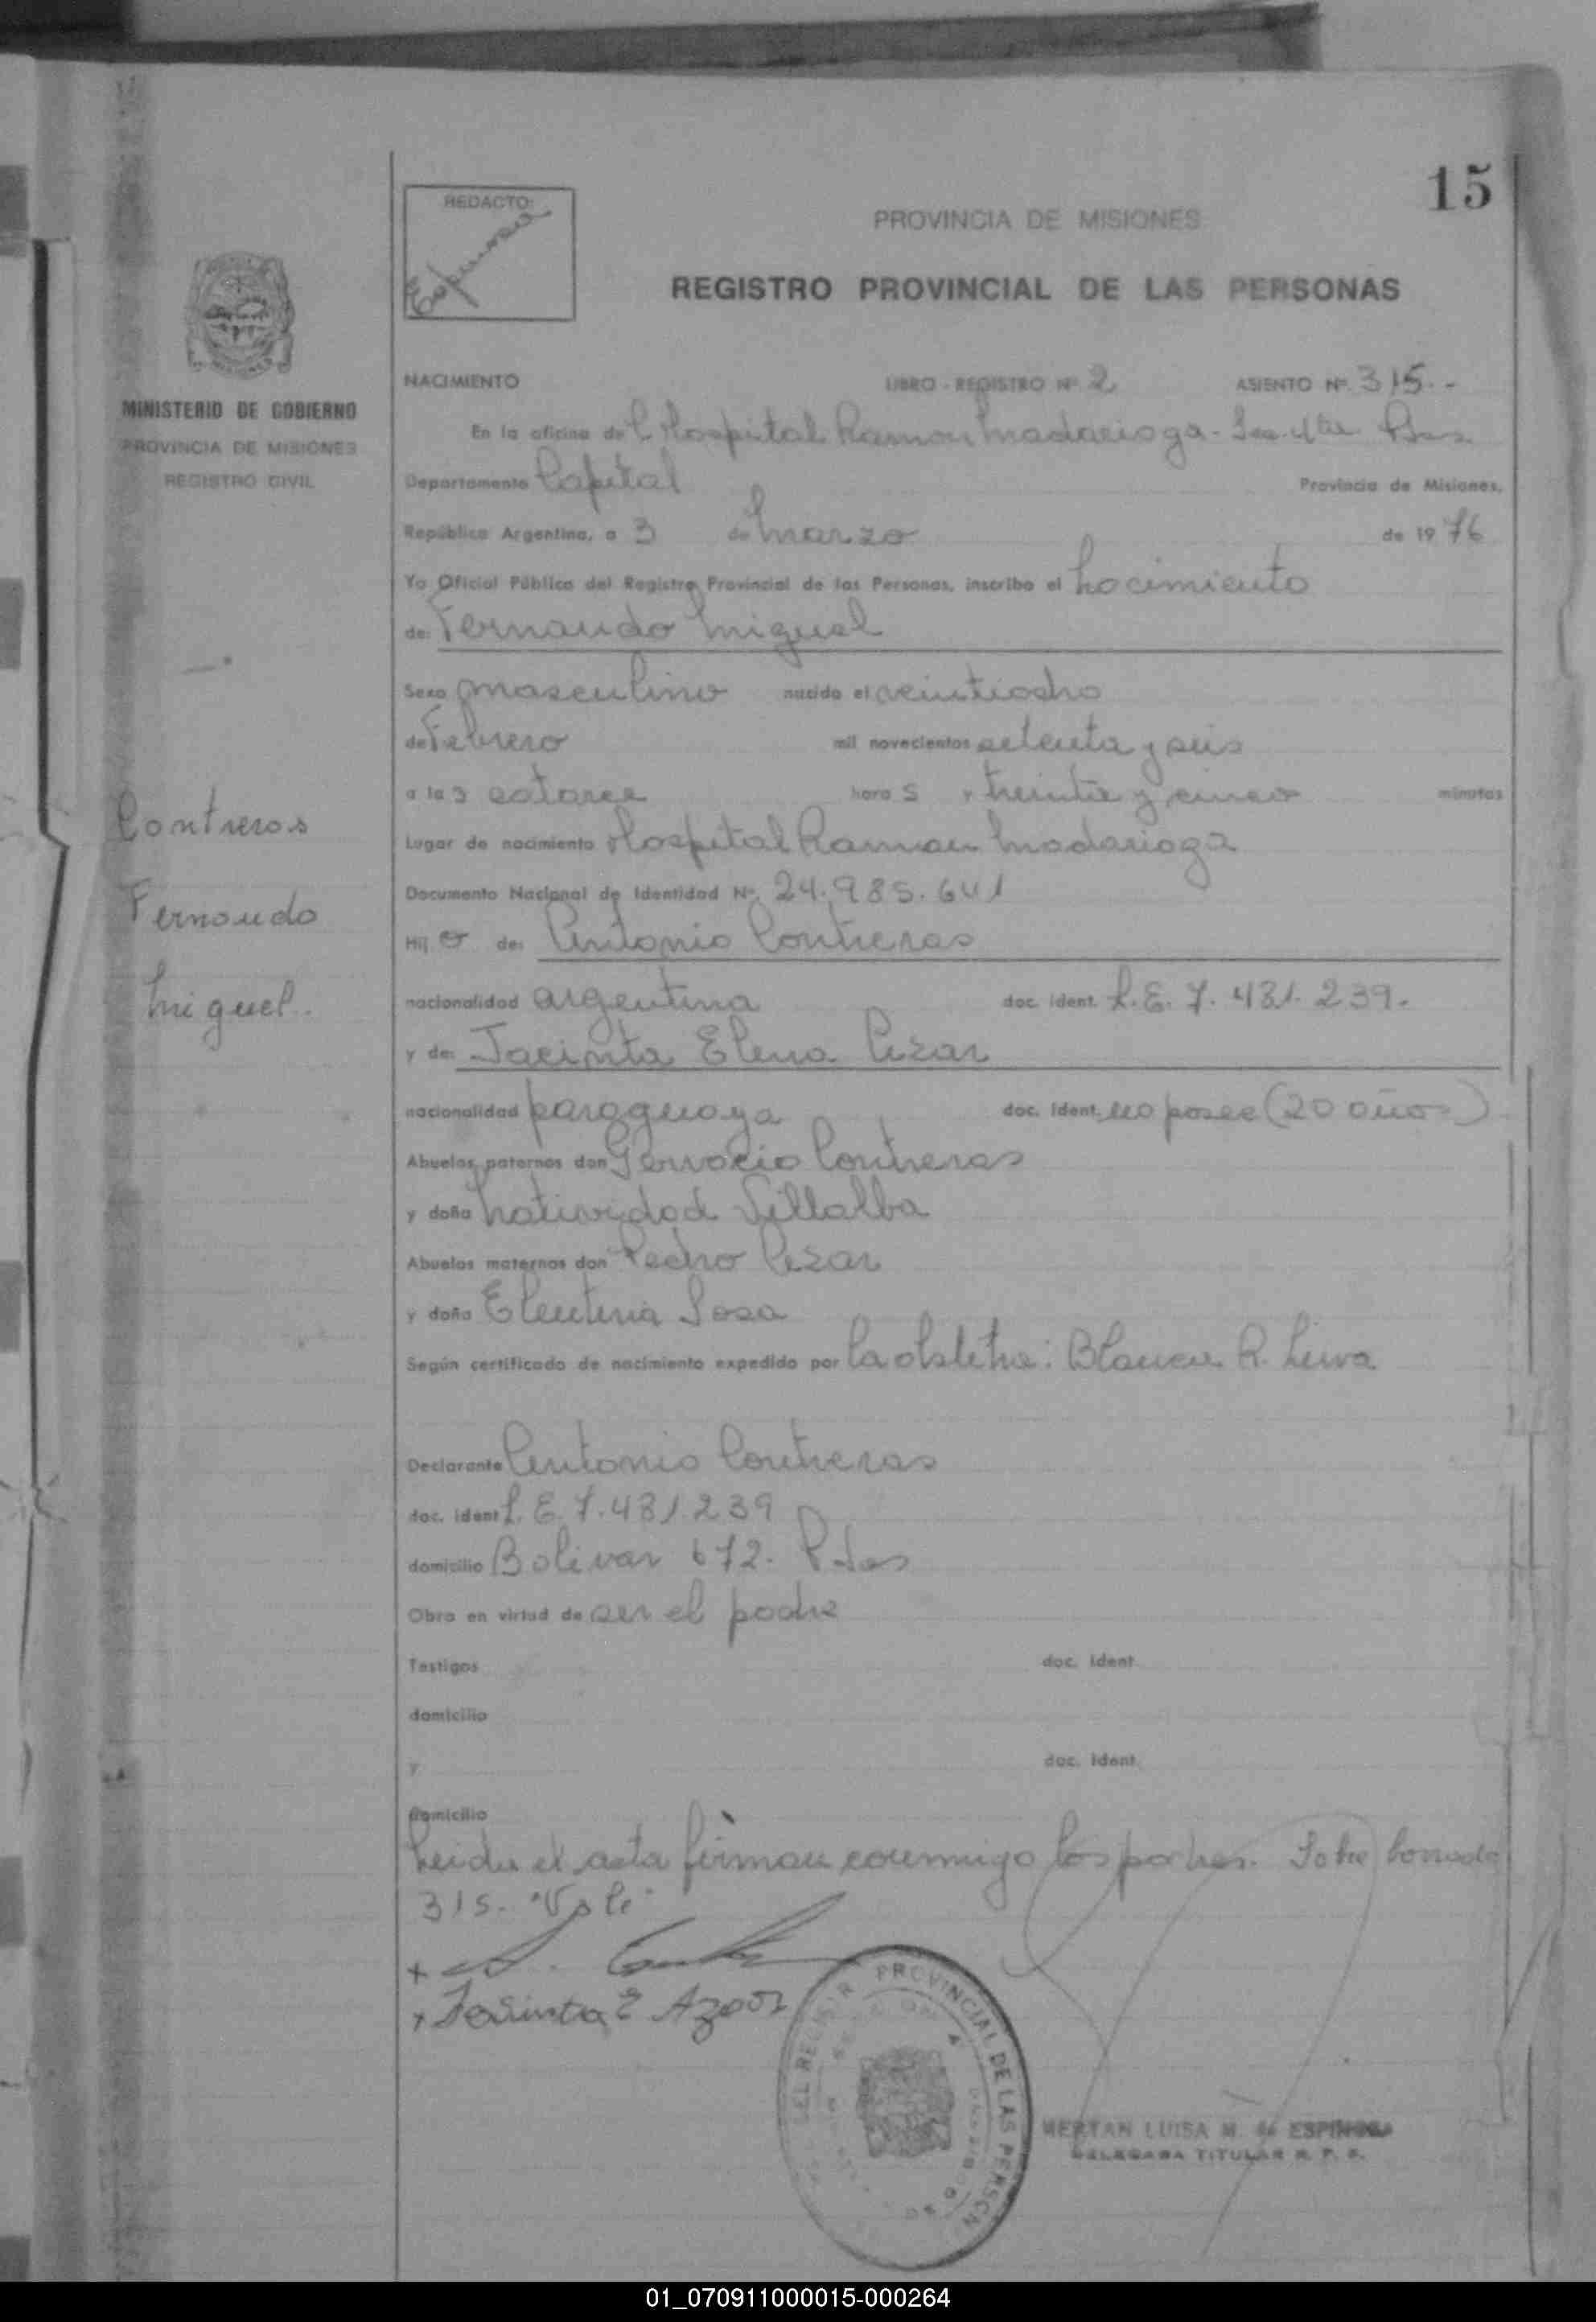 15
REDACTO:
Espinosa
PROVINCIA DE MISIONES
REGISTRO PROVINCIAL DE LAS PERSONAS
MINISTERIO DE GOBIERNO
PROVINCIA DE MISIONES
REGISTRO CIVIL
NACIMIENTO LIBRO - REGISTRO Nº 2 ASIENTO Nº. 315.-
En la oficina del Hospital Ramon Madariaga - Sec. 4ta Pdas.
Departamento Capital Provincia de Misiones,
República Argentina, a 3 de Marzo de 1976
Yo Oficial Público del Registro Provincial de las Personas, inscribo el Nacimiento
de: Fernando Miguel
Sexo masculino nacido el veintiocho
de Febrero mil novecientos setenta y seis
a las catorce horas y treinta y cinco minutos
Lugar de nacimiento Hospital Ramon Madariaga
Documento Nacional de Identidad Nº. 24.985.641
Hijo de: Antonio Contreras
nacionalidad argentina doc. ident. L.E. 7.481.239.
y de: Jacinta Elena
nacionalidad paraguaya doc. ident. no posee (20 años)
Abuelos paternos don Gervacio Contreras
y doña Natividad Villalba
Abuelos maternos don Pedro
y doña Eleuteria Sosa
Según certificado de nacimiento expedido por la obstetra: Blanca R. Leiva
Contreras
Fernando
Miguel.
Declarante Antonio Contreras
doc. ident L.E. 7.481.239
domicilio Bolivar 672. Pdas
Obra en virtud de ser el padre
Testigos doc. ident.
domicilio
y doc. ident.
domicilio
Leida el acta firman conmigo los padres. Sobre borrado
315. "Vale"
Jasinta E
PROVINCIAL DE LAS PERSON
LUISA M. de ESPINOSA
DELEGADA TITULAR R. P. P.
01_070911000015-000264